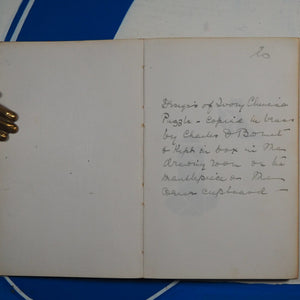 Designs of Ivory Chinese
Puzzle - copied in brass
by Charles D
& kept in box in the
drawing room on the
mantlepiece or the
corner cupboard -